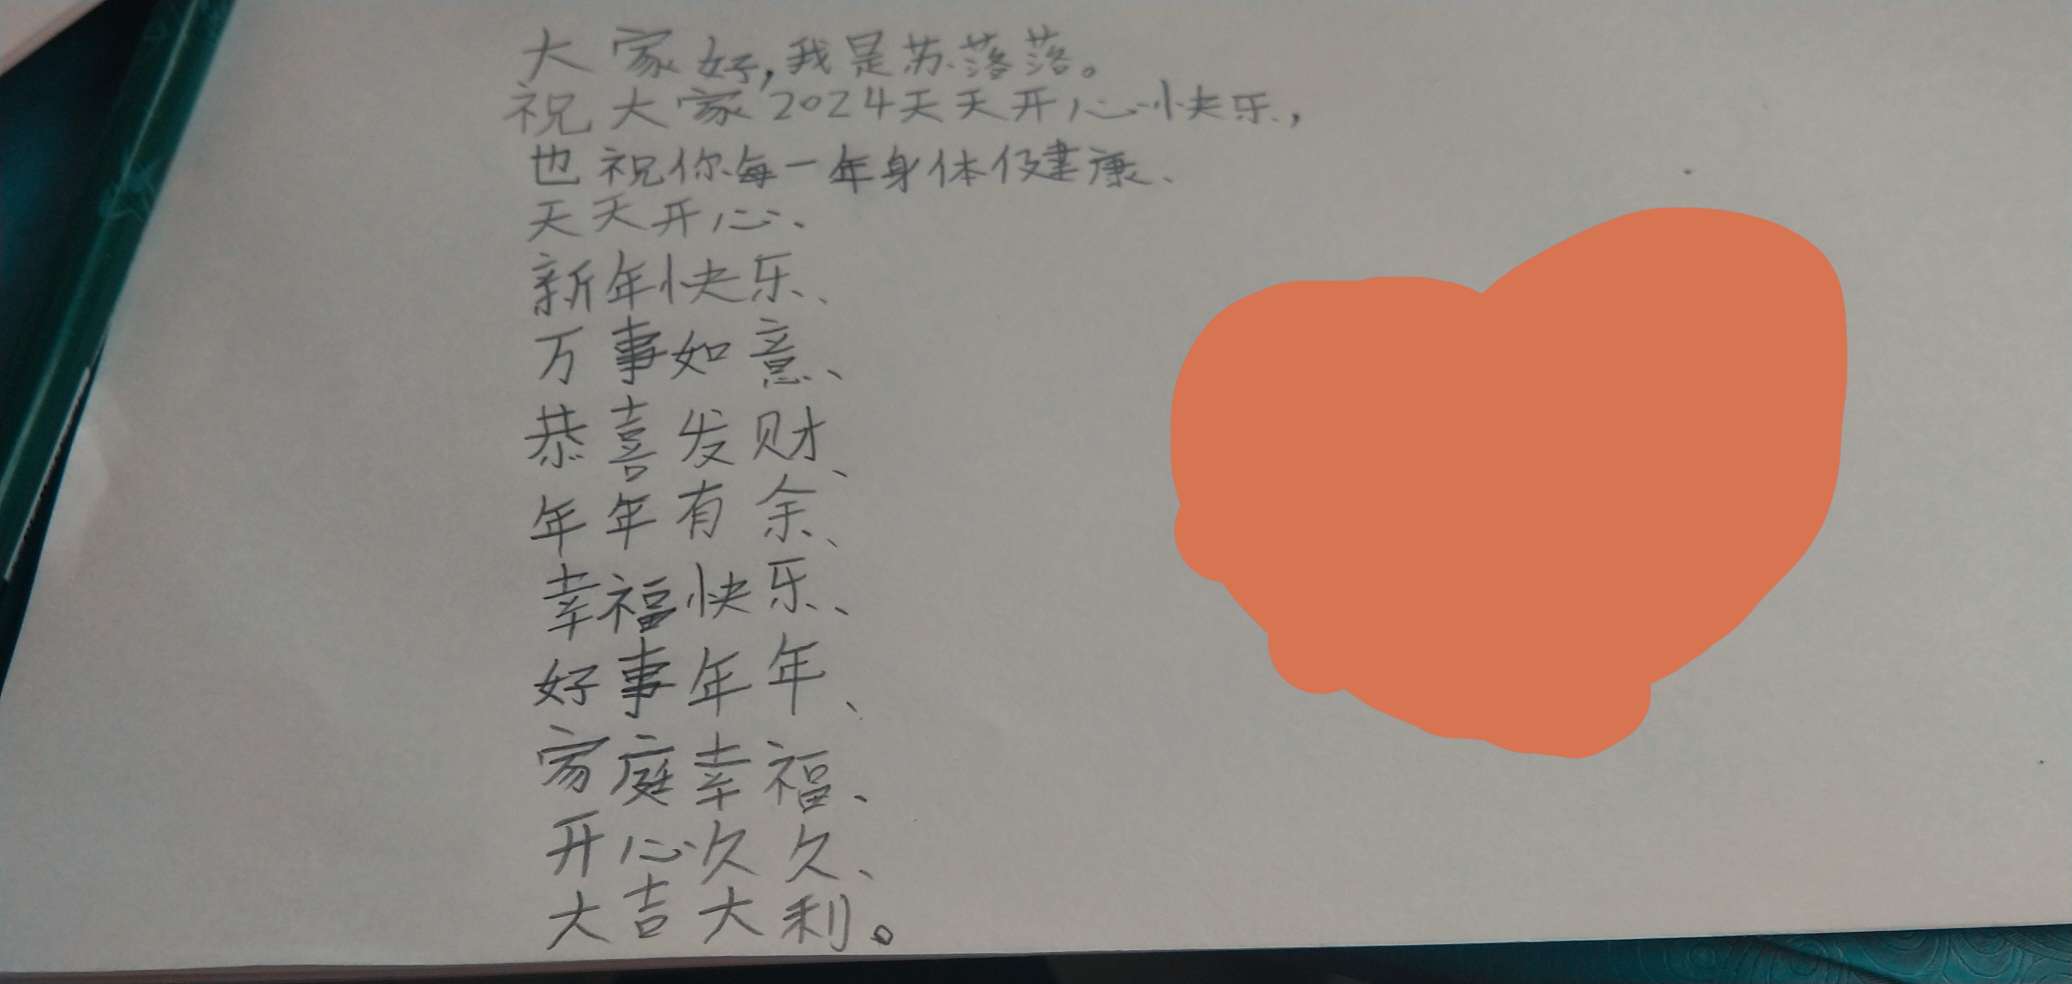 大家好,我是苏落落。
祝大家2024天天开心快乐,
也祝你每一年身体健康、
天天开心、
新年快乐、
万事如意、
恭喜发财、
年年有余、
幸福快乐、
好事年年、
家庭幸福、
开心久久、
大吉大利。